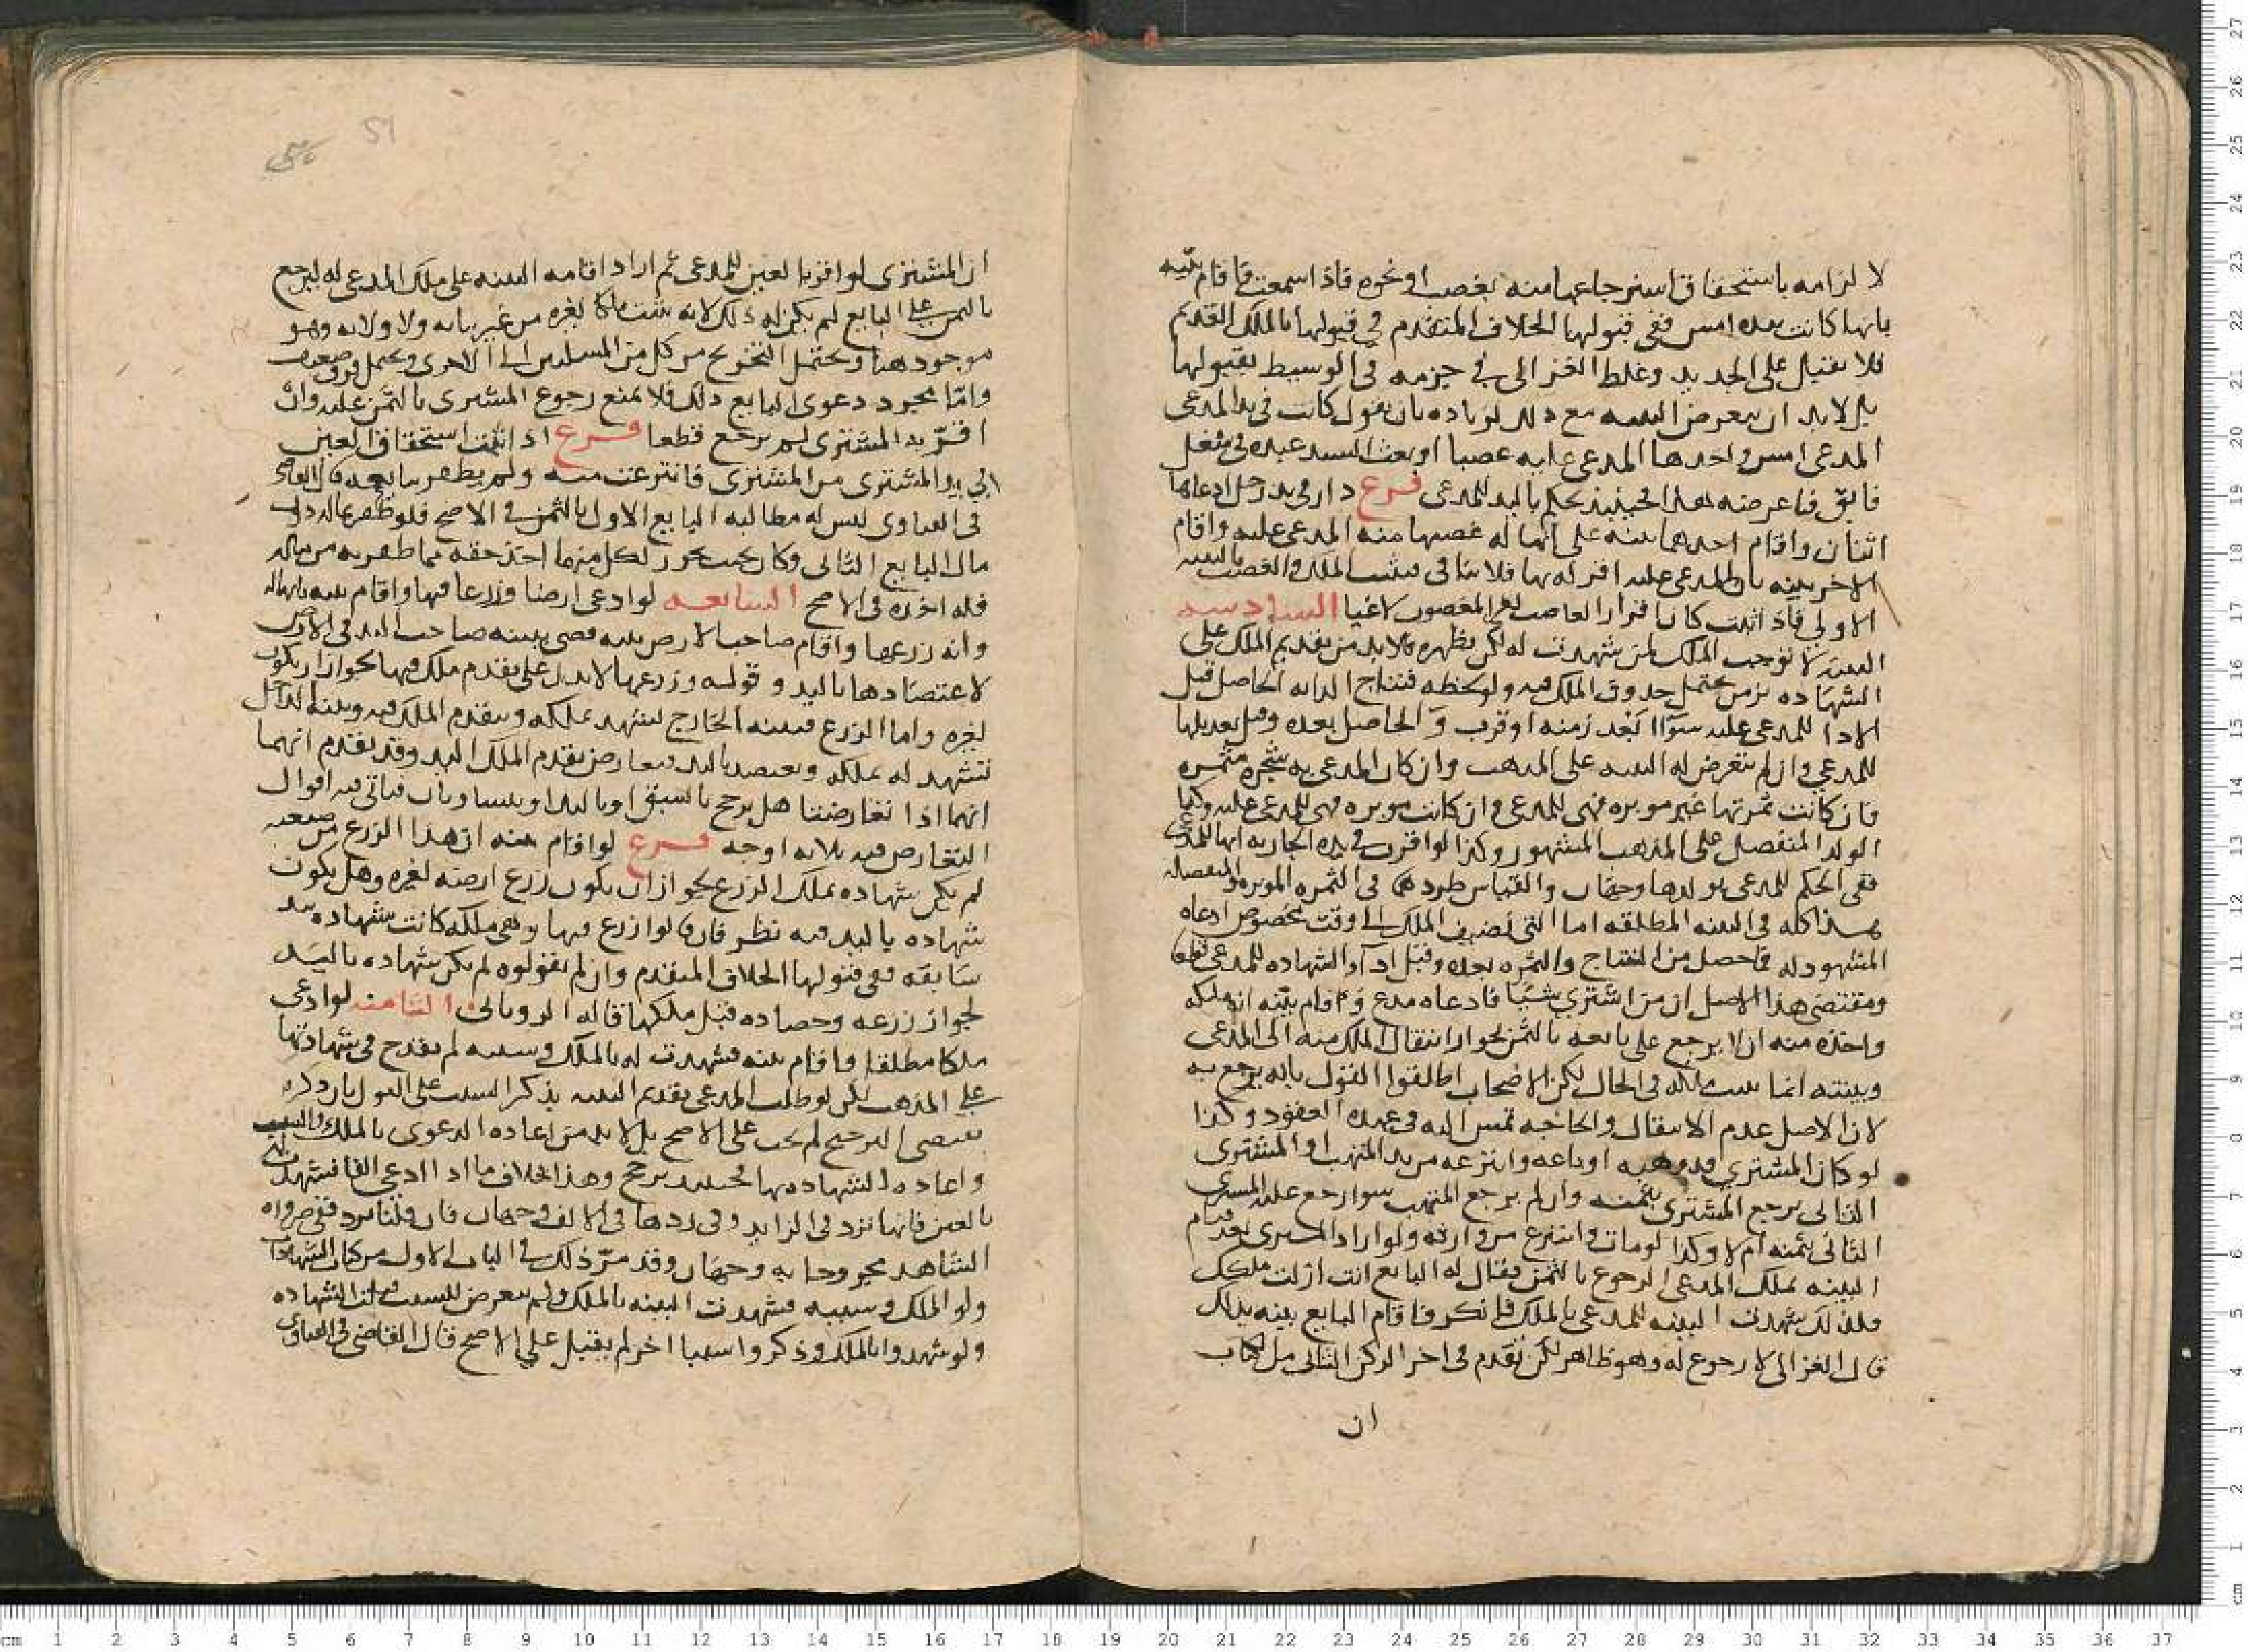 لا لزامه باستحقاق استرجاعها منه بغصب او نحوه فاذا سمعت فاقام بينه
بانها كانت بيده امس ففي قبولها الخلاف المتقدم في قبولها بالملك القديم
فلا تقبل على الجديد وغلط الغزالي في جزمه في الوسيط بقبولها
بل لا بد ان يتعرض البينه مع ذلك لزياده بان يقول كانت في يد المدعى
المدعى امس واخذها المدعى عليه غصبا او بعث السيد عبده في شغل
فابق فاعترضه هذا فحينئذ يحكم باليد للمدعى فرع دار في يد رجل ادعاها
اثنان واقام احدهما بينه على انها له غصبها منه المدعى عليه واقام
الاخر بينه بان المدعى عليه اقر له بها فلا تنافي فيثبت الملك والغصب بالبينه
الاولى فاذا ثبت كان اقرار الغاصب لغير المغصوب لاغيا السادسه
البينة لا توجب الملك لمن شهدت له لكن تظهره فلا بد من تقديم الملك على
الشهاده بزمن يحتمل حدوث الملك فيه ولو لحظه فنتاج الدابه الحاصل قبل
الادا للمدعى عليه سوآا بعد زمنه او قرب و الحاصل بعده وقبل تعديلها
للمدعي وان لم تتعرض له البينه على المذهب وان كان المدعى به شجره مثمره
فان كانت ثمرتها غير موبره فهي للمدعى وان كانت موبره فهي للمدعى عليه وكذا
الولد المنفصل على المذهب المشهور وكذا لو اقر من في يده الجاريه انها للمدعى
ففي الحكم للمدعى بولدها وجهان والقياس طردهما في الثمره الموبره المنفصله
هذا كله في البينه المطلقه اما التي تضيف الملك الى وقت مخصوص ادعاه
المشهود له فاحصل من النتاج والثمره بعده وقبل ادآ الشهاده للمدعى قطعا
ومقتضى هذا الاصل ان من اشترى شيا فادعاه مدع واقام بينه انه ملكه
واخذه منه ان لا يرجع على بائعه بالثمن لجواز انتقال الملك منه الى المدعى
وبينته انما تثبت ملكه في الحال لكن الاصحاب اطلقوا القول بانه يرجع به
لان الاصل عدم الانتقال والحاجه تمس اليه في عهده العقود وكذا
لو كان المشتري قد وهبه او باعه وانتزعه من يد المتهب او المشترى
الثاني يرجع المشترى بثمنه وان لم يرجع المتهب سوا رجع عليه المشترى
الثاني بثمنه ام لا وكذا لو مات وانتزع من وارثه ولو اراد المشترى بعد قيام
البينه بملك المدعى الرجوع بالثمن فقال له البايع انت ازلت ملكك
فلذلك شهدت البينه للمدعى بالملك فانكر فاقام البايع بينه بذلك
قال الغزالي لا رجوع له وهو ظاهر لكن تقدم في اخر الركن الثاني من كتاب
ان
51
ان المشترى لو اقر بالعين للمدعى ثم اراد اقامه البينه على ملك المدعى له ليرجع
بالثمن على البايع لم يكن له ذلك لانه يثبت ملكا لغيره من غير نيابه ولا ولايه وهو
موجود هنا ويحتمل التخريج من كل من المسلتين الى الاخرى ويحتمل فرق ضعيف
واما مجرد دعوى البايع ذلك فلا تمنع رجوع المشترى بالثمن عليه وان
اقر به المشترى لم يرجع قطعا فرع اذا ثبت استحقاق العين
في يد المشترى من المشترى فانتزعت منه ولم يظهر بايعه قال القاضى
في الفتاوى ليس له مطالبه البايع الاول بالثمن في الاصح فلو ظهر مال
مال البايع الثاني وكان بحيث يجوز لكل منهما اخذ حقه مما ظهر به من ماله
فله اخذه في الاصح السابعه لو ادعى ارضا وزرعا فيها واقام بينه بانها له
وانه زرعها واقام صاحب الارض بينه قضى ببينه صاحب اليد في الارض
لاعتضادها باليد و قوله وزرعها لا يدل على تقدم ملك فيها لجواز ان يكون
لغيره واما الزرع فبينه الخارج تشهد بملكه ويتقدم الملك فيه وبينه الداخل
تشهد له بملكه ويعتضد باليد فيعارض تقدم الملك اليد وقد تقدم انهما
انهما اذا تعارضتا هل يرجح بالسبق او باليد او يتساويان فياتي فيه اقوال
التعارض فيه ثلاثه اوجه فرع لو اقام بينه ان هذا الزرع من ضيعته
لم يكن شهاده بملك الزرع لجواز ان يكون زرع ارضه لغيره وهل يكون
شهاده باليد فيه نظر فان قالوا زرع فيها وهي ملكه كانت شهاده بيد
سابقه ففي قبولها الخلاف المتقدم وان لم يقولوه لم يكن شهاده باليد
لجواز زرعه وحصاده قبل ملكها قاله الروياني الثامنه لو ادعى
ملكا مطلقا واقام بينه فشهدت له بالملك وسببه لم يقدح في شهادتها
على المذهب لكن لو طلب المدعى تقديم البينه بذكر السبب على القول بان ذكره
يقتضى الترجيح لم يجب على الاصح بل لا بد من اعاده الدعوى بالملك والسبب
واعاده الشهاده بها فحينئذ يرجح وهذا بخلاف ما اذا ادعى الفا فشهدت
بالفين فانها ترد في الزايد وفي ردها في الالف وجهان فان قلنا ترد ففي صيرورة
الشاهد مجروحا به وجهان وقد مر ذلك في الباب الاول من كتاب الشهادات
ولو الملك وسببه فشهدت البينه بالملك ولم تتعرض للسبب قبلت الشهاده
ولو شهدوا بالملك وذكروا سببا اخر لم يقبل على الاصح قال القاضى في الفتاوى